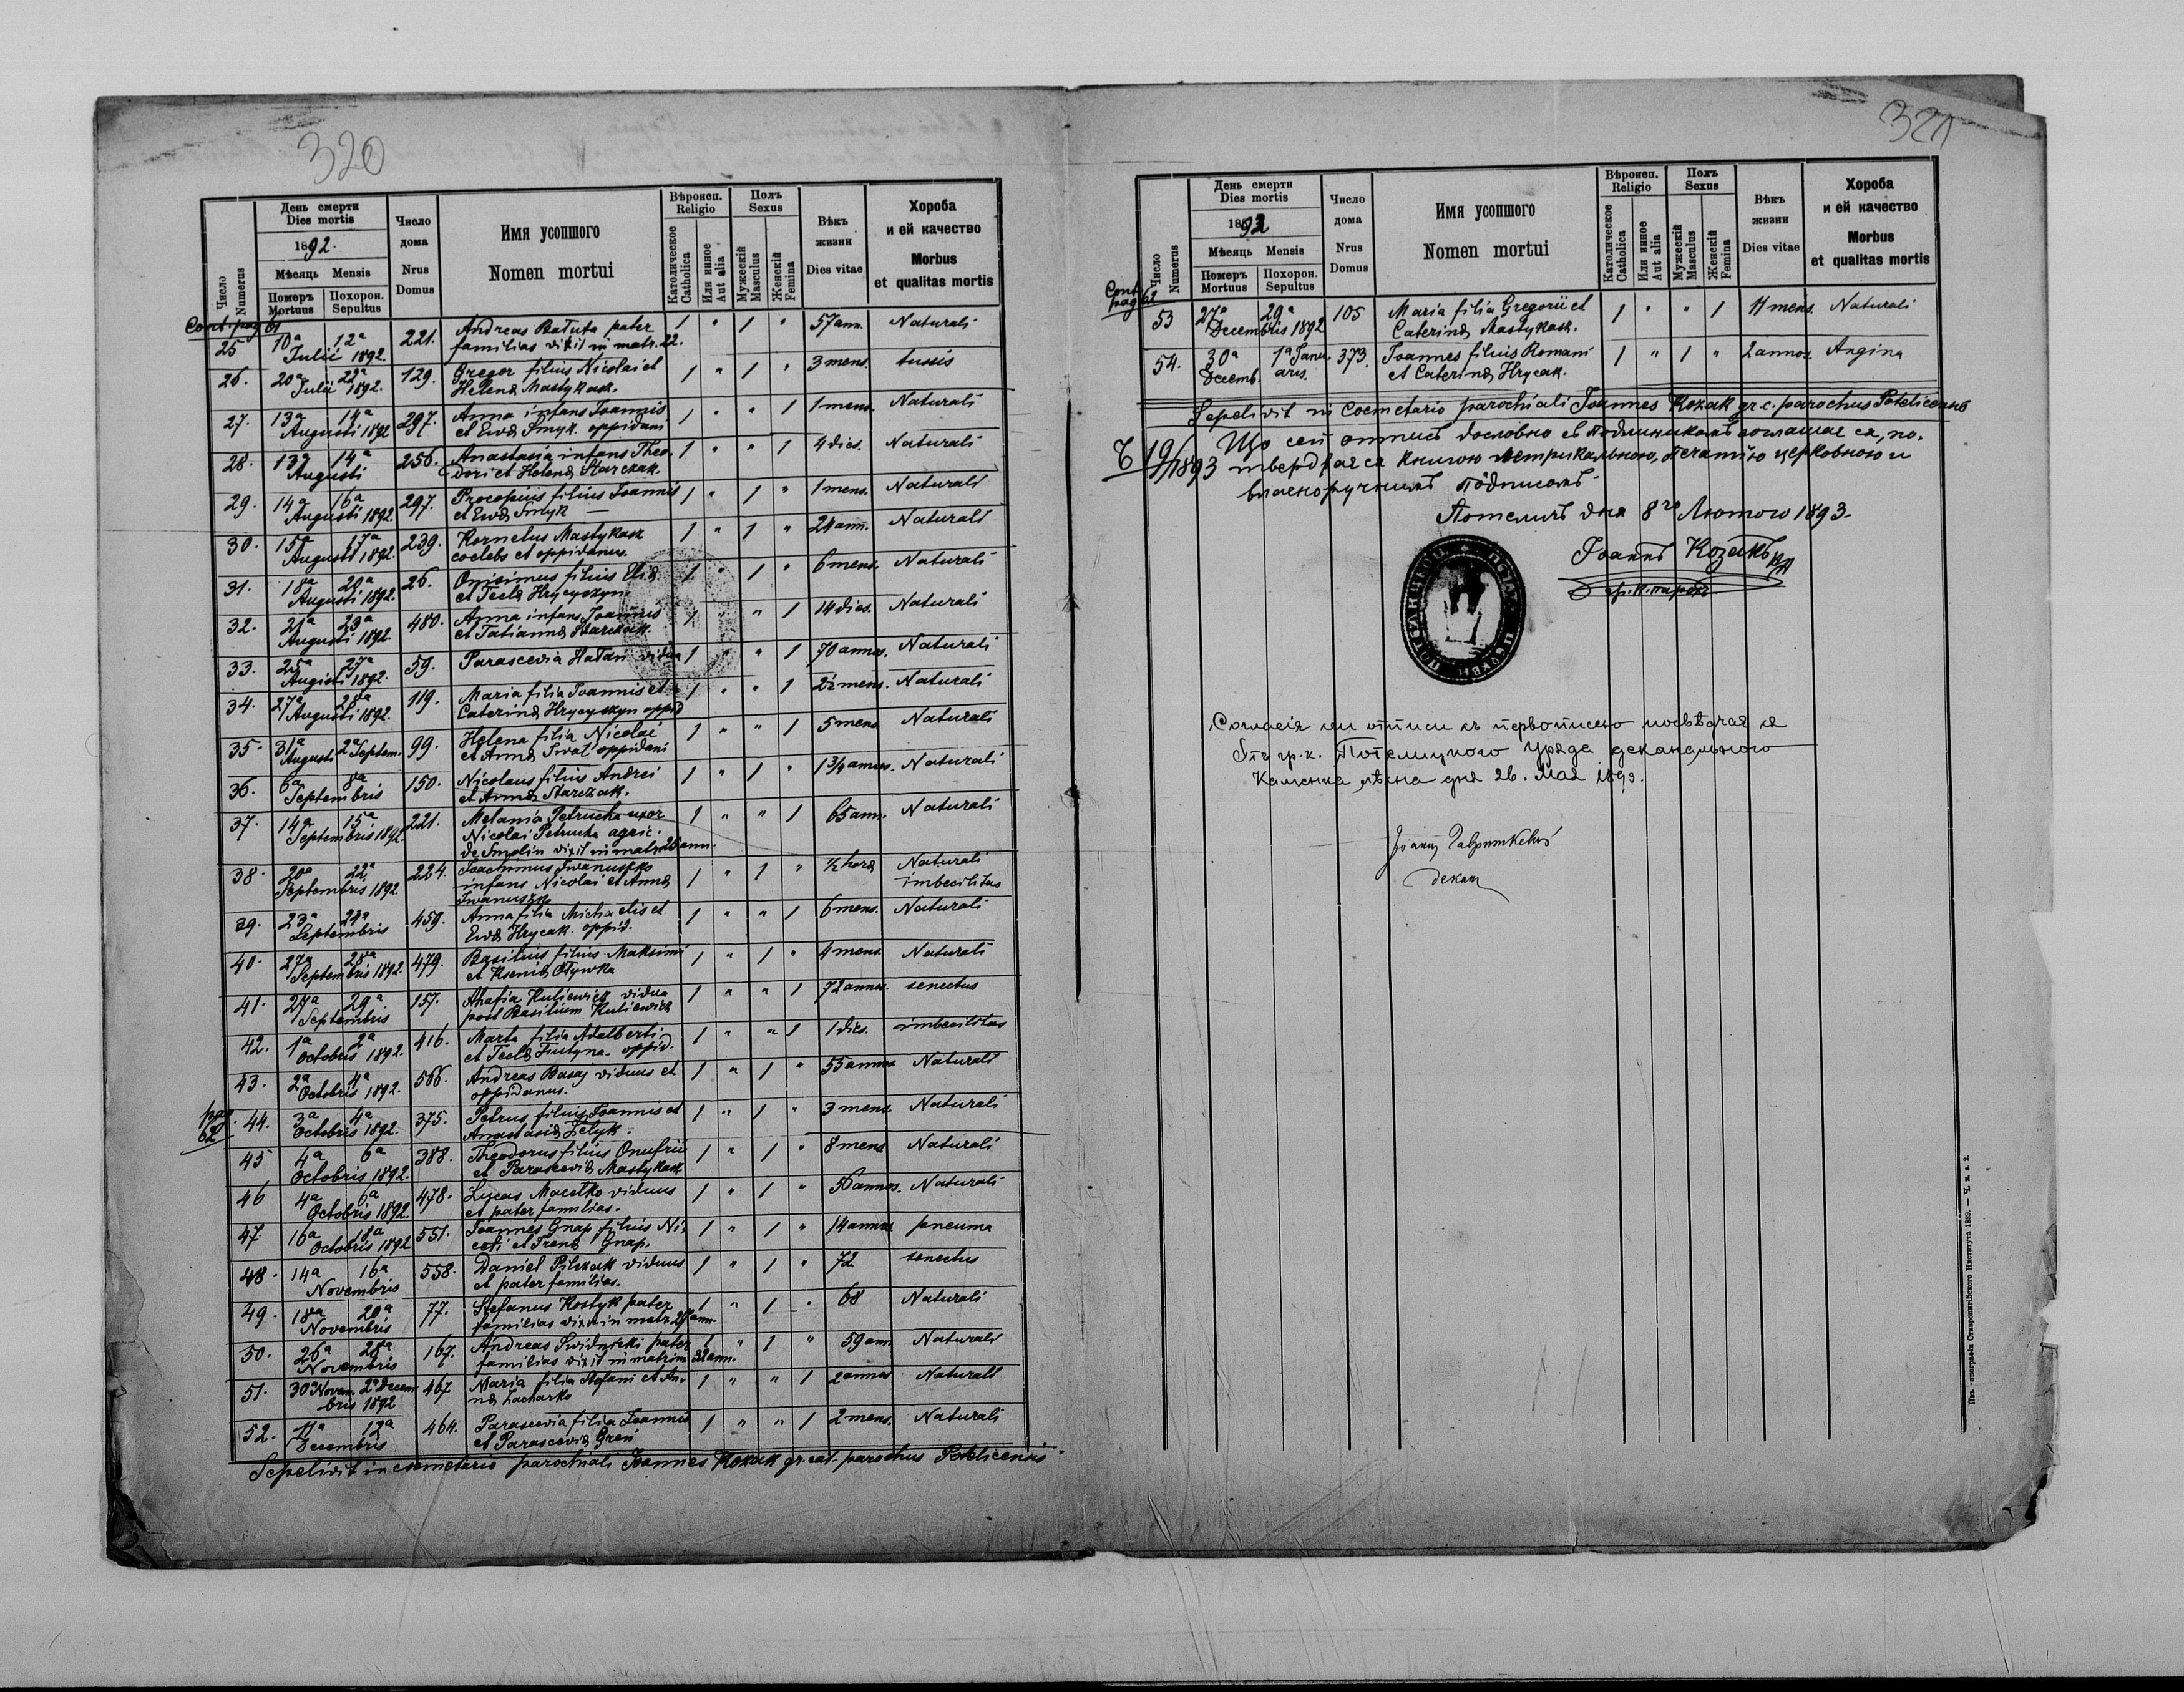 320
Число
Numerus
День смерти
Dies mortis
1892.
Мѣсяць Mensis
Померъ
Mortuus
Похорон.
Sepultus
Число
дома
Nrus
Domus
Имя усопшого
Nomen mortui
Вѣроисп.
Religio
Католическое
Catholica
Или инное
Aut alia
Полъ
Sexus
Мужескій
Masculus
Женскій
Femina
Вѣкъ
жизни
Dies vitae
Хороба
и ей качество
Morbus
et qualitas mortis
Cont. pag 61
25 10ª 12ª Julii 1892. 221. Andreas Bałuta pater 1 " 1 " 57 ann. Naturali
familias vixit in matr. 22.
26. 20ª 22ª Julii 1892. 129. Gregor filius Nicolai et 1 " 1 " 3 mens. tussis
Helenæ Mastykasz.
27. 13ª 14ª Augusti 1892 297. Anna infans Joannis 1 " " 1 1 mens. Naturali
et Evæ Smyk. oppidani
28. 13ª 14ª Augusti 256. Anastasia infans Theo- 1 " " 1 4 dies. Naturali
dori et Helenæ Starczak.
29. 14ª 16ª Augusti 1892. 297. Procopius filius Joannis 1 " 1 " 1 mens. Naturali
et Evæ Smyk —
30. 15ª 17ª Augusti 1892. 239. Kornelus Mastykasz 1 " 1 " 24 ann. Naturali
coelebs et oppidanus.
31. 18ª 20ª Augusti 1892. 26. Onisimus filius Eliæ 1 " 1 " 6 mens. Naturali
et Teclæ Hrycyszyn.
32. 21ª 23ª Augusti 1892. 480. Anna infans Joannis 1 " " 1 14 dies. Naturali
et Tatiannæ Starczak.
33. 25ª 27ª Augusti 1892. 59. Parascevia Hałań vidua 1 " " 1 70 annos. Naturali
34. 27ª 28ª Augusti 1892. 119. Maria filia Joannis et 1 " " 1 2½ mens. Naturali
Caterinæ Hrycyszyn oppid
35. 31ª Augusti 2ª Septem. 99. Helena filia Nicolai 1 " " 1 5 mens Naturali
et Annæ oppidani
36. 6ª 8ª Septembris 150. Nicolaus filius Andrei 1 " 1 " 1¾ annos. Naturali
et Annæ Starczak.
37. 14ª 15ª Septembris 1892. 221. Melania Petrucha uxor 1 " " 1 65 ann. Naturali
Nicolai Petrucha agric.
de Smolin vixit in matr. 25 ann.
38. 20ª 22ª Septembris 1892. 224. Joachimus Iwanuszko 1 " 1 " ½ hora Naturali
infans Nicolai et Annæ imbecilitas
Iwanuszko
39. 23ª 24ª Septembris 459. Anna filia Michaelis et 1 " " 1 6 mens. Naturali
Evæ Hrycak. oppid.
40. 27ª 28ª Septembris 1892. 479. Basilius filius Maksimi 1 " 1 " 4 mens. Naturali
et Kseniæ Oływka
41. 27ª 29ª Septembris 157. Ahafia Kuliewicz vidua 1 " " 1 72 annos. senectus
post Basilium Kuliewicz
42. 1ª 2ª Octobris 1892. 416. Marta filia Adalberti 1 " " 1 1 dies. imbecilitas
et Teclæ oppid.
43. 2ª 4ª Octobris 1892. 566. Andreas Basaj viduus et 1 " 1 " 55 annos Naturali
oppidanus.
pag. 62
44. 3ª 4ª Octobris 1892. 375. Petrus filius Joannis et 1 " 1 " 3 mens. Naturali
Anastasiæ Żelyk.
45 4ª 6ª Octobris 1892. 388. Theodorus filius Onufrii 1 " 1 " 8 mens Naturali
et Parasceviæ Mastykasz
46 4ª 6ª Octobris 1892. 478. Lucas Macełko viduus 1 " 1 " 56 annos. Naturali
et pater familias.
47. 16ª 18ª Octobris 1892 551. Joannes Gnap filius Ni- 1 " 1 " 14 annos pneuma
colai et Irenæ Gnap.
48. 14ª 16ª Novembris 558. Daniel Pilszak viduus 1 " 1 " 72. senectus
et pater familias.
49. 18ª 20ª Novembris 77. Stefanus Kostyk pater 1 " 1 " 68 Naturali
familias vixit in matr. 28 ann.
50. 26ª 28ª Novembris 167. Andreas Świdnicki pater 1 " 1 " 59 ann. Naturali
familias vixit in matrim 32 ann.
51. 30ª Novem. 2ª Decem bris 1892 467. Maria filia Stefani et An- 1 " " 1 2 annos Naturali
næ Zacharko
52. 11ª 13ª Decembris 464. Parascevia filia Joannis 1 " " 1 2 mens. Naturali
et Parasceviæ Greń
Sepelivit in coemetario parochiali Joannes Kozak gr. cat. parochus Potelicensis
321
Число
Numerus
День смерти
Dies mortis
1892
Мѣсяць Mensis
Померъ
Mortuus
Похорон.
Sepultus
Число
дома
Nrus
Domus
Имя усопшого
Nomen mortui
Вѣроисп.
Religio
Католическое
Catholica
Или инное
Aut alia
Полъ
Sexus
Мужескій
Masculus
Женскій
Femina
Вѣкъ
жизни
Dies vitae
Хороба
и ей качество
Morbus
et qualitas mortis
Cont. pag 62
53 27ª 29ª Decembris 1892 105 Maria filia Gregorii et 1 " " 1 11 mens. Naturali
Caterinæ Mastykasz.
54. 30ª Decemb. 1ª Janu aris. 373. Joannes filius Romani 1 " 1 " 2 annos Angina
et Caterinæ Hrycak.
Sepelivit in Coemetario parochiali Joannes Kozak gr. c. parochus Potelicensis
Ч 19/1893 Що сей отписъ дословно съ подлинникомъ соглашає ся, по-
тверджає ся книгою метрикальною, печатію церковною и
власноручнымъ пôдписомъ.
Потеличь дня 8го Лютого 1893.
Іоаннъ Козакъ
гр. к. парохъ
Согласіе сеи отписи съ первописею посвѣдчає ся
Отъ гр. к. Потелицкого Уряда деканального
Каменка лѣсна дня 26. Мая 1893.
Іоаннъ Гавришкевичъ
декан
Изъ типографіи Ставропигійского Института 1889. — Ч. к. в. 2.